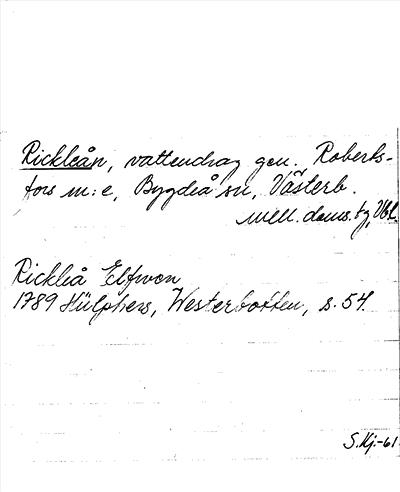 Rickleån, vattendrag gen. Roberts-
fors m:e, Bygdeå sn, Västerb.
mell. doms. tg, Vbl.
Rickleå Elfwen
1789 Hülphers, Westerbotten, s. 54.
S.Kj.-61